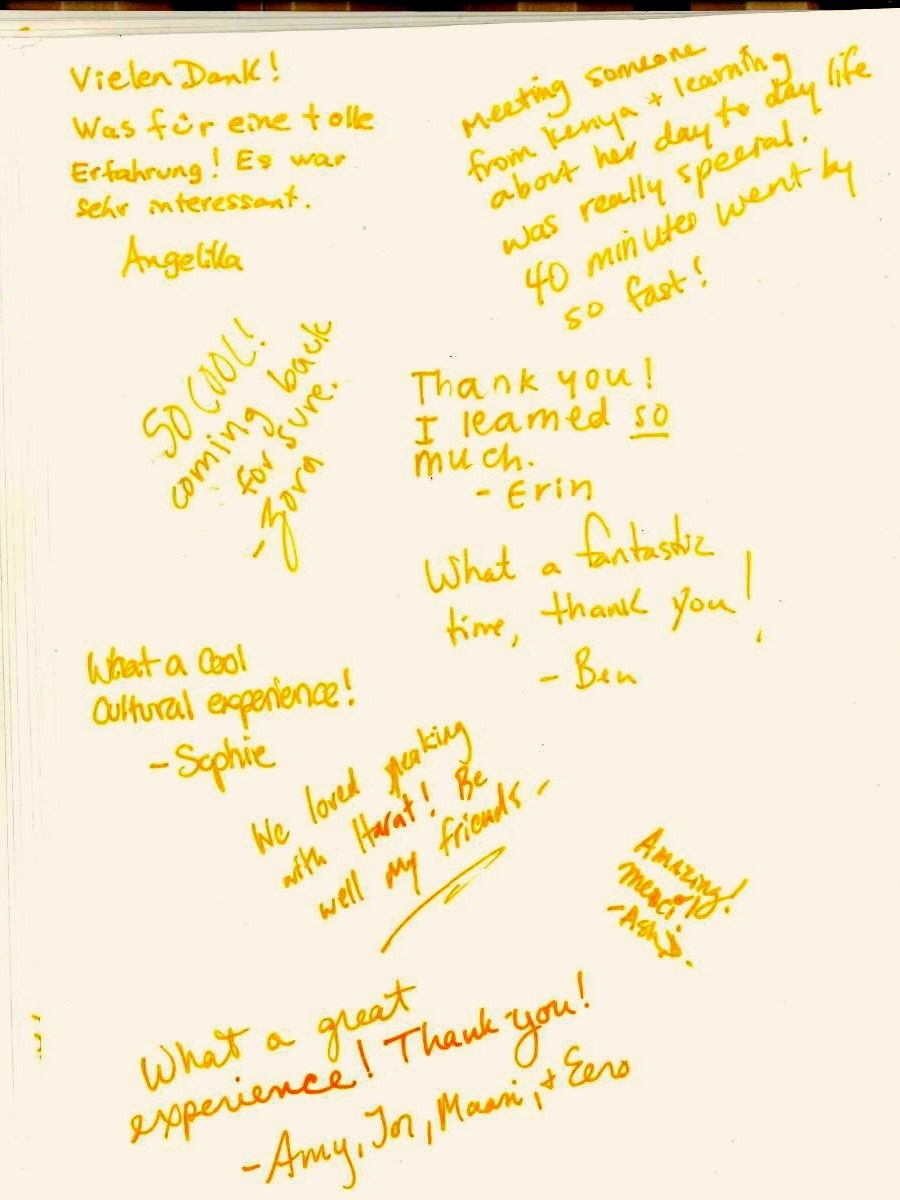 Vielen Dank!
Was für eine tolle
Erfahrung! Es war
sehr interessant.
Angelika
Meeting someone
from Kenya + learning
about her day to day life
was really special.
40 minutes went by
so fast!
SO COOL!
coming back
for sure.
- Zora
Thank you!
I learned so
much.
- Erin
What a fantastic
time, thank you!
- Ben
What a cool
cultural experience!
- Sophie
We loved speaking
with Harat! Be
well my friends -
Amazing!
- Ash
What a great
experience! Thank you!
- Amy, Jon, Maari, + Eero